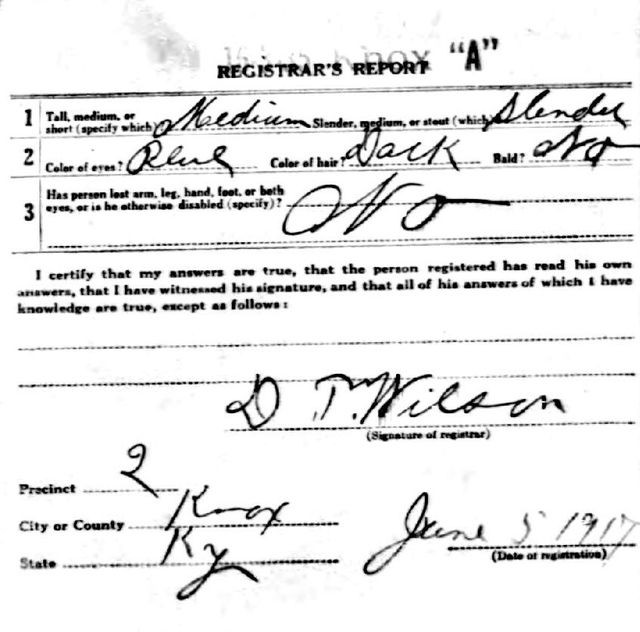 REGISTRAR'S REPORT "A"
1 Tall, medium, or short (specify which) Medium Slender, medium, or stout (which) Slender
2 Color of eyes? Blue Color of hair? Dark Bald? No
3 Has person lost arm, leg, hand, foot, or both eyes, or is he otherwise disabled (specify)? No
I certify that my answers are true, that the person registered has read his own
answers, that I have witnessed his signature, and that all of his answers of which I have
knowledge are true, except as follows:
D. T. Wilson
(Signature of registrar)
Precinct 2
City or County Knox
State Ky
June 5 1917
(Date of registration)